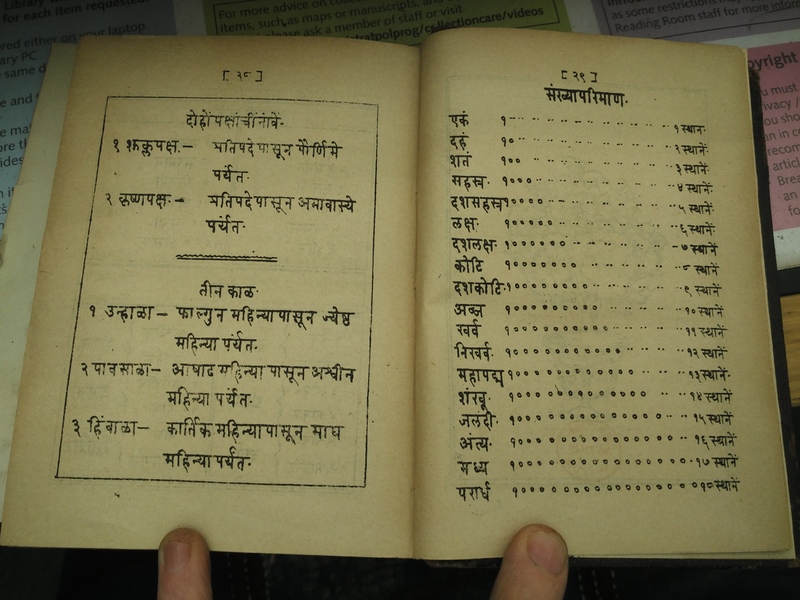 Library w
for each item requested.
For more advice on
items, such as maps or manuscripts,
please ask a member of staff or visit
as some restrictions may
Reading Room staff for more
[ २८ ]
दोहोंपक्षांचींनांवें.
१ शुक्लपक्ष.— प्रतिपदेपासून पौर्णिमे
पर्यंत.
२ कृष्णपक्ष.— प्रतिपदेपासून अमावास्ये
पर्यंत.
तीन काळ.
१ उन्हाळा— फाल्गुन महिन्यापासून ज्येष्ठ
महिन्या पर्यंत.
२ पावसाळा— आषाढ महिन्या पासून अश्वीन
महिन्या पर्यंत.
३ हिंवाळा— कार्तिक महिन्यापासून माघ
महिन्या पर्यंत.
[ २९ ]
संख्यापरिमाण.
एकं १ १ स्थान.
दहं १० २ स्थानें
शतं १०० ३ स्थानें
सहस्र. १००० ४ स्थानें
दशसहस्र १०००० ५ स्थानें
लक्ष. १००००० ६ स्थानें
दशलक्ष. १०००००० ७ स्थानें
कोटि १००००००० ८ स्थानें
दशकोटि. १०००००००० ९ स्थानें
अब्ज १००००००००० १० स्थानें
खर्व १०००००००००० ११ स्थानें
निखर्व. १००००००००००० १२ स्थानें
महापद्म १०००००००००००० १३ स्थानें
शंखू. १००००००००००००० १४ स्थानें
जलदी. १०००००००००००००० १५ स्थानें
अंत्य. १००००००००००००००० १६ स्थानें
मध्य १०००००००००००००००० १७ स्थानें
परार्ध १००००००००००००००००० १८ स्थानें